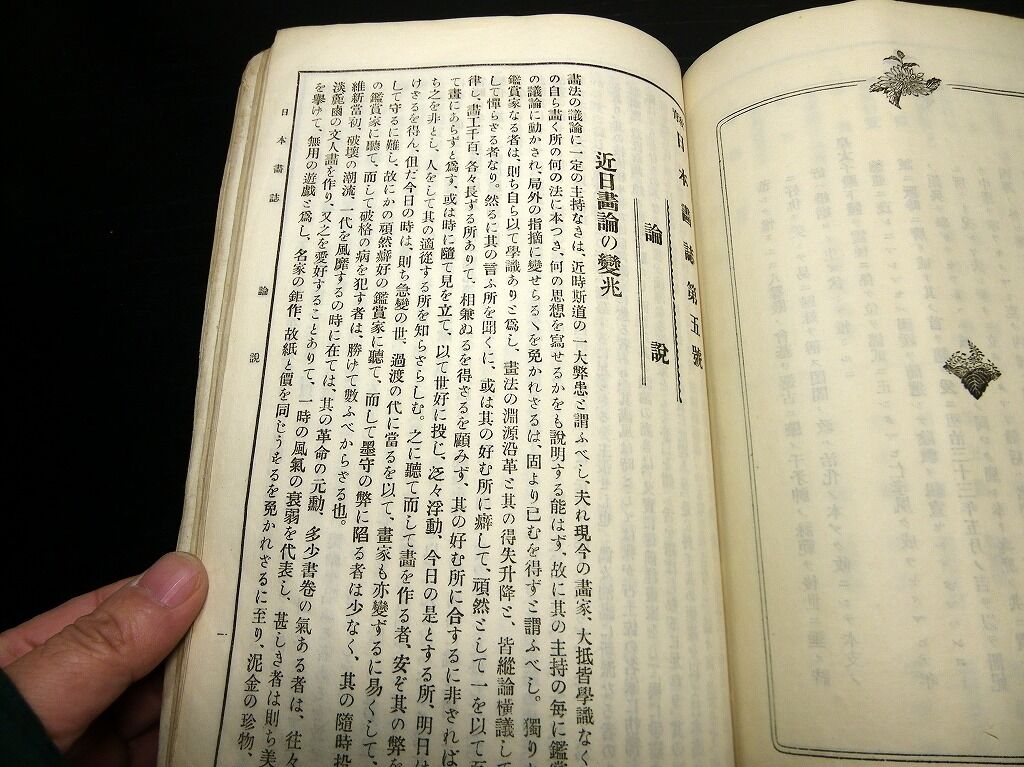 日本畫誌第五號
論說
近日畫論の變兆
畫法の議論に一定の主持なきは、近時斯道の一大弊患と謂ふべし、夫れ現今の畫家、大抵皆學識なく
の自ら畫く所の何の法に本つき、何の思想を寫せるかをも說明する能はず、故に其の主持の每に鑑賞
の議論に動かされ、局外の指摘に變せらるゝを免かれさるは、固より已むを得ずと謂ふべし。獨り
鑑賞家なる者は、則ち自ら以て學識ありと爲し、畫法の淵源沿革と其の得失升降と、皆縱論橫議して
して憚らさる者なり。然るに其の言ふ所を聞くに、或は其の好む所に癖して、頑然として一を以て百
律し、畫工千百、各々長ずる所ありて、相兼ぬるを得さるを顧みず、其の好む所に合するに非されば
て畫にあらずと爲す、或は時に隨て見を立て、以て世好に投じ、泛々浮動、今日の是とする所、明日は
ち之を非とし、人をして其の適從する所を知らさらしむ。之に聽て而して畫を作る者、安ぞ其の弊を
けさるを得ん、但だ今日の時は、則ち急變の世、過渡の代に當るを以て、畫家も亦變ずるに易くして、
して守るに難し、故にかの頑然癖好の鑑賞家に聽て、而して墨守の弊に陷る者は少なく、其の隨時投
の鑑賞家に聽て、而して破格の病を犯す者は、勝けて數ふべからさる也。
維新當初、破壞の潮流、一代を風靡するの時に在ては、其の革命の元勳、多少書卷の氣ある者は、往々
淡麁鹵の文人畫を作り、又之を愛好することありて、一時の風氣の衰弱を代表し、甚しき者は則ち美
を擧けて、無用の遊戲と爲し、名家の鉅作、故紙と價を同じうするを免かれさるに至り、泥金の珍物、
日本畫誌
論說
一